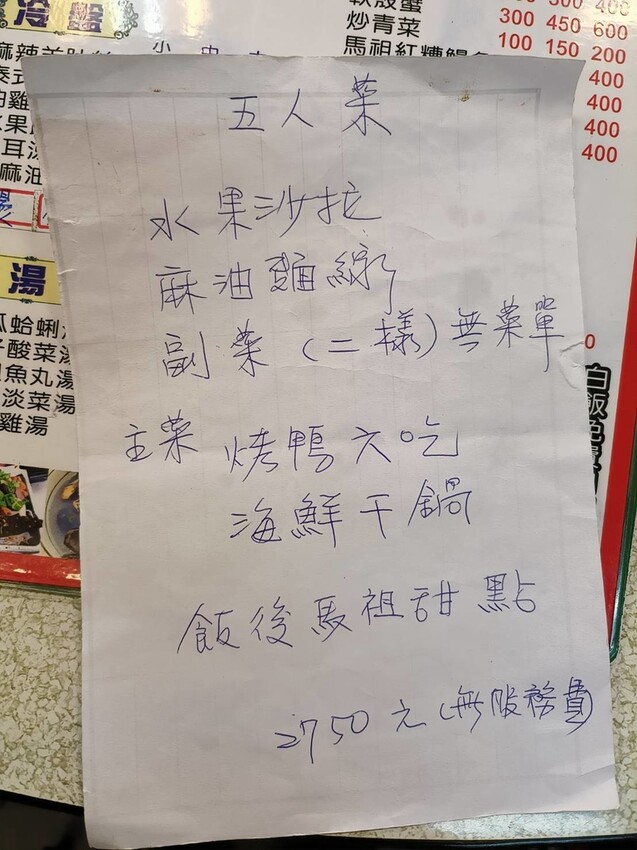 冷盤
小 中 大
炒青菜
300 450 600
馬祖紅糟鰻魚
100 150 200
400
400
400
400
湯
子酸菜湯
魚丸湯
淡菜湯
雞湯
五人菜
水果沙拉
麻油麵線
副菜(二樣)無菜單
主菜 烤鴨六吃
海鮮干鍋
飯後馬祖甜點
2750元(無服務費)